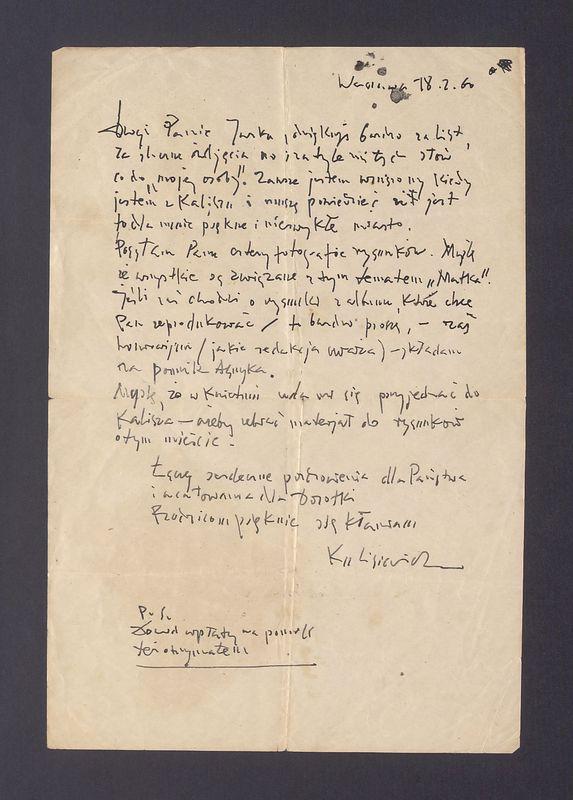 Warszawa 18.2.60
Drogi Panie Janku, dziękuję bardzo za list,
za zdjęcia no i za tyle słów
co do „mojej osoby". Zawsze jestem wzruszony kiedy
jestem w Kaliszu i muszę powiedzieć iż jest
to dla mnie piękne i niezwykłe miasto.
Posyłam Panu cztery fotografie rysunków. Myślę
że wszystkie są związane z tym tematem „Matka".
Jeśli zaś chodzi o rysunki z albumu, które chce
Pan reprodukować / to bardzo proszę, – zaś
honorarium / jakie redakcja uważa) – składam
na pomnik Asnyka.
Myślę, że w kwietniu uda mi się przyjechać do
Kalisza – żeby zebrać materjał do rysunków
o tym mieście.
Łączę serdeczne pozdrowienia dla Państwa
i ucałowania dla Dorotki
Rodzicom pięknie się kłaniam
Kulisiewicz
P.S.
Dowód wpłaty na pomnik
też otrzymałem